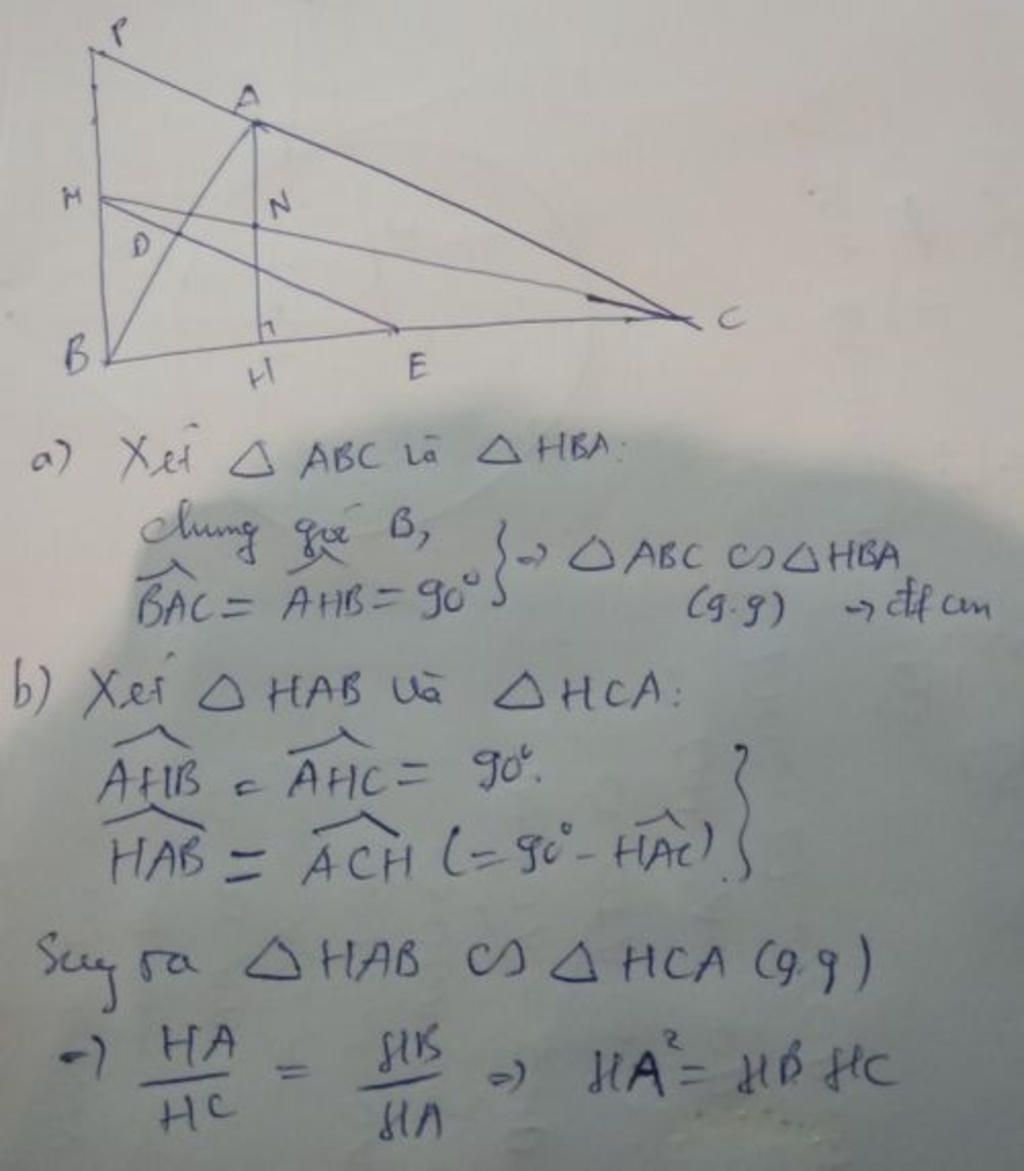 P
A
M
N
D
B
H
E
C
a) Xét △ ABC và △ HBA:
chung góc B,
$\widehat{BAC} = \widehat{AHB} = 90^0$ } ⇒ △ ABC ∽ △ HBA
(g.g) → đpcm
b) Xét △ HAB và △ HCA:
$\widehat{AHB} = \widehat{AHC} = 90^0$.
$\widehat{HAB} = \widehat{ACH}$ $(= 90^0 - \widehat{HAC})$ }
Suy ra △ HAB ∽ △ HCA (g.g)
⇒ $\frac{HA}{HC} = \frac{HB}{HA}$ ⇒ $HA^2 = HB HC$